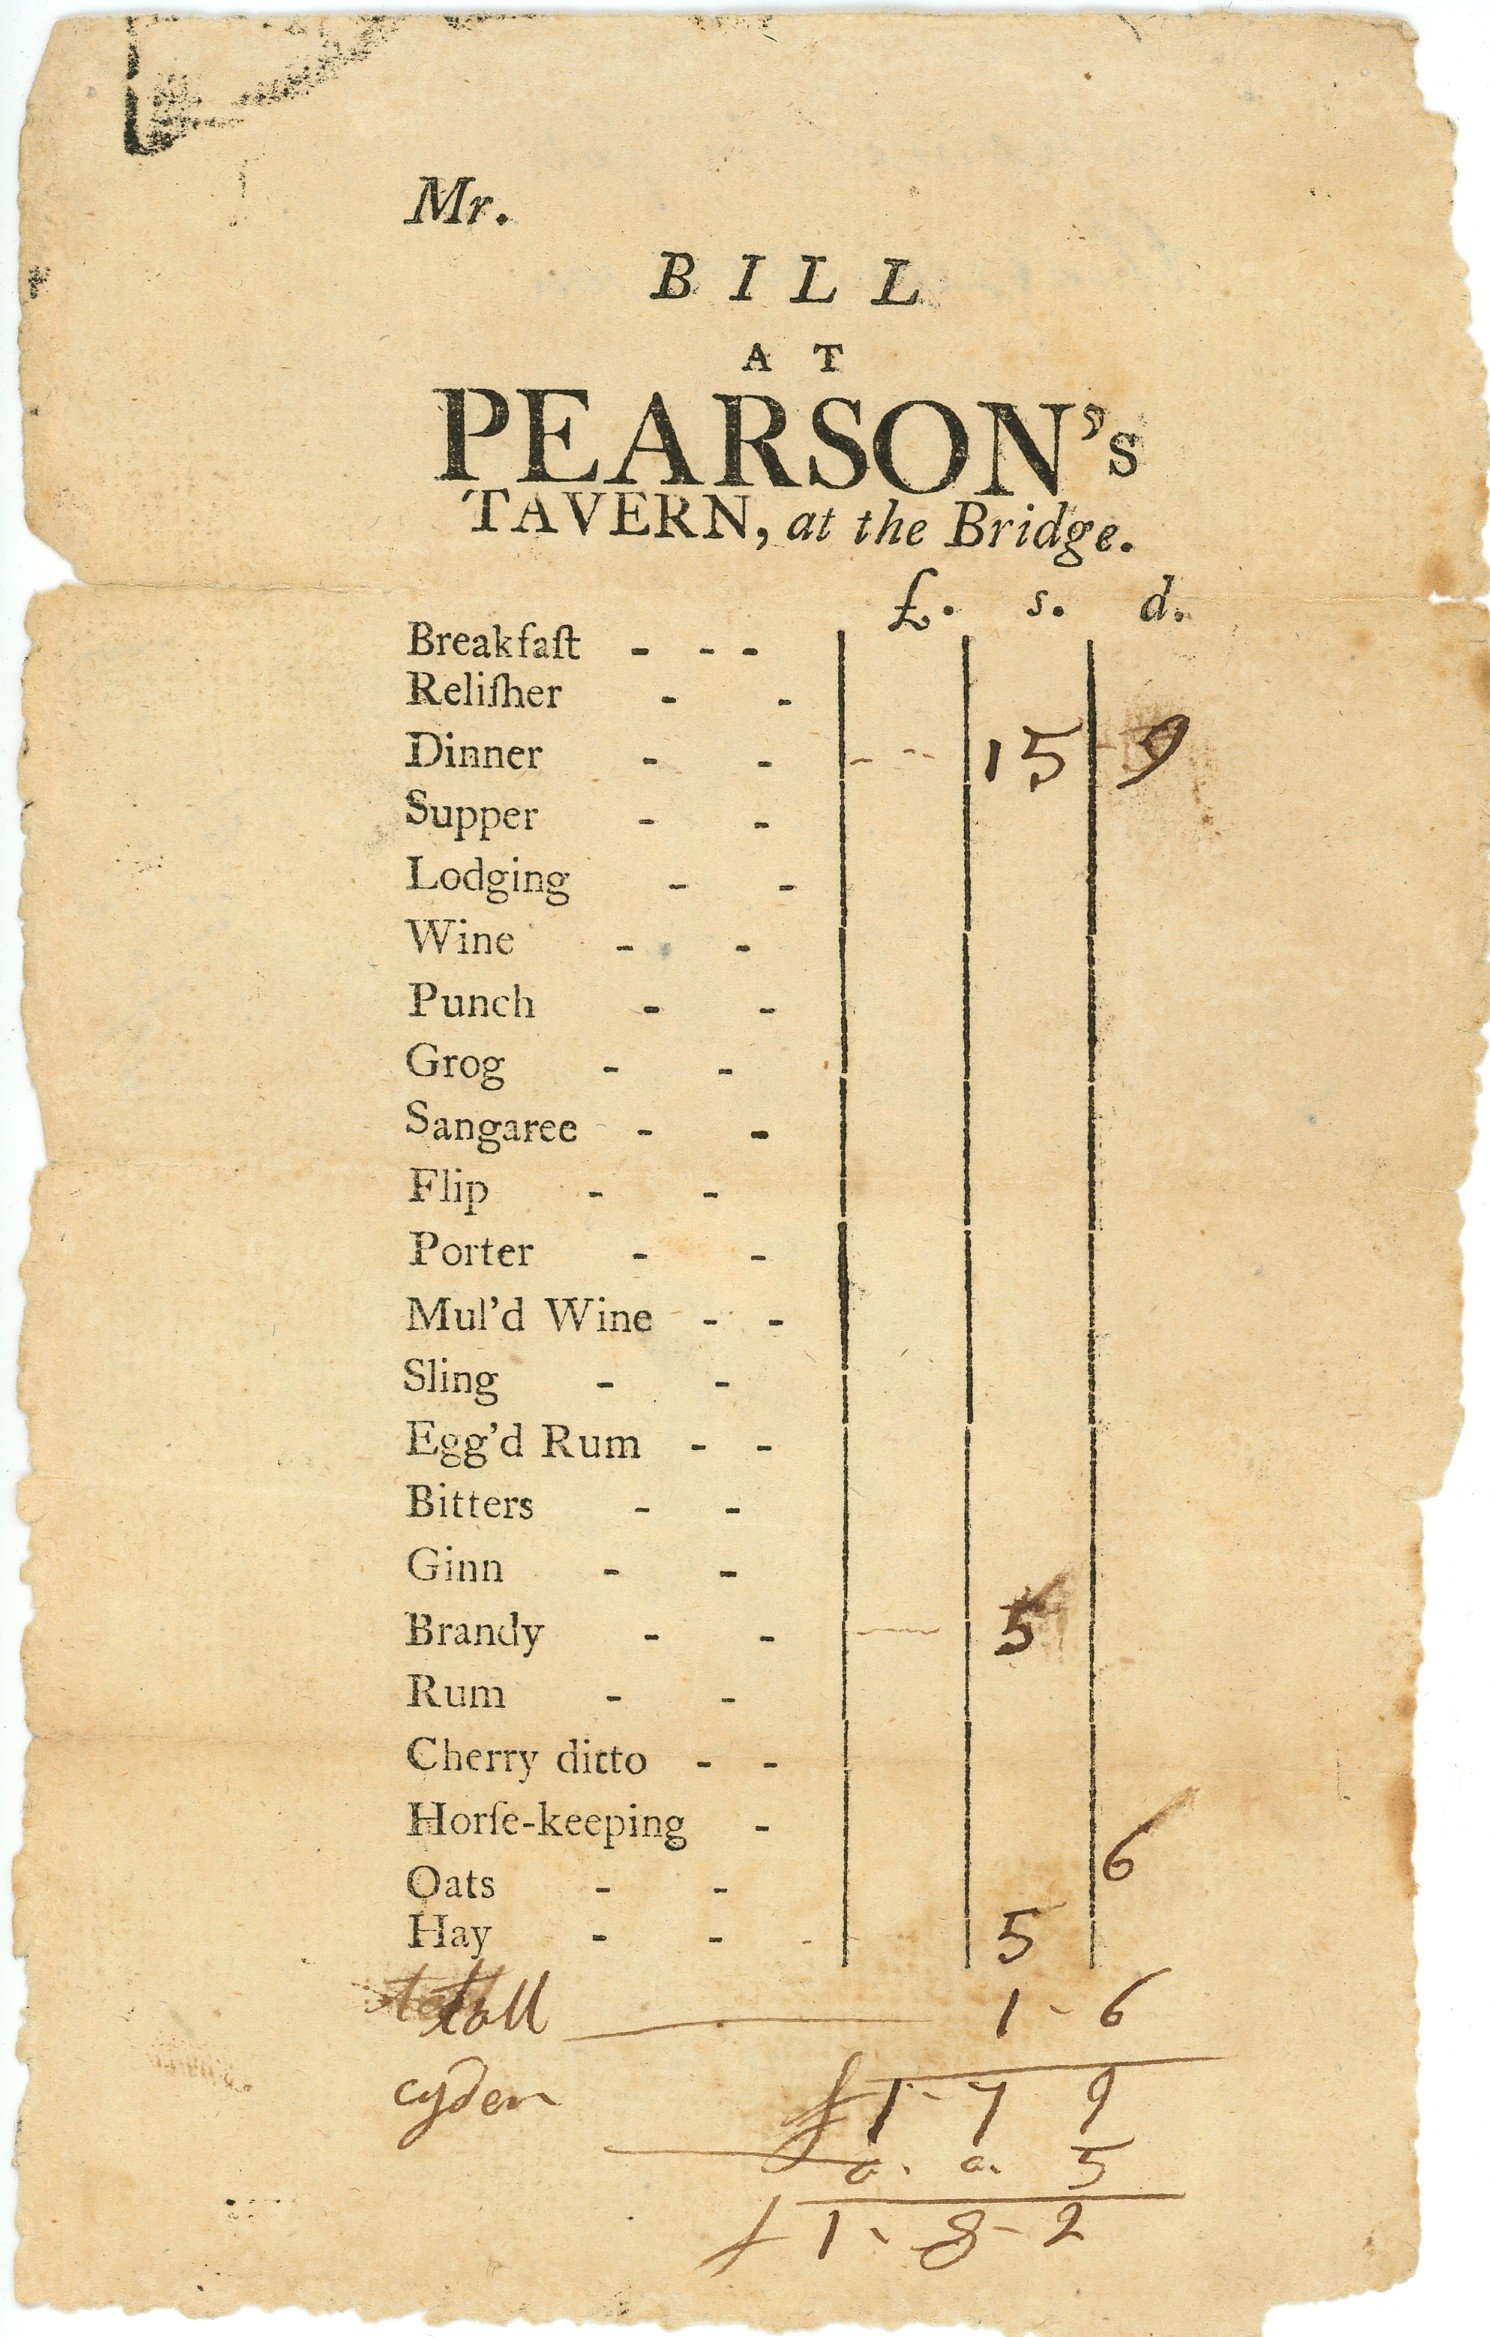 Mr.
B I L L
A T
PEARSON's
TAVERN, at the Bridge.
£. s. d.
Breakfaſt - - -
Reliſher - -
Dinner - - 15 9
Supper - -
Lodging - -
Wine - -
Punch - -
Grog - -
Sangaree - -
Flip - -
Porter - -
Mul'd Wine - -
Sling - -
Egg'd Rum - -
Bitters - -
Ginn - -
Brandy - - 5
Rum - -
Cherry ditto - -
Horſe-keeping -
Oats - - 6
Hay - - 5
toll 1 - 6
£ 1 - 7 9
cyder 0. 0. 5
£ 1 - 8 - 2